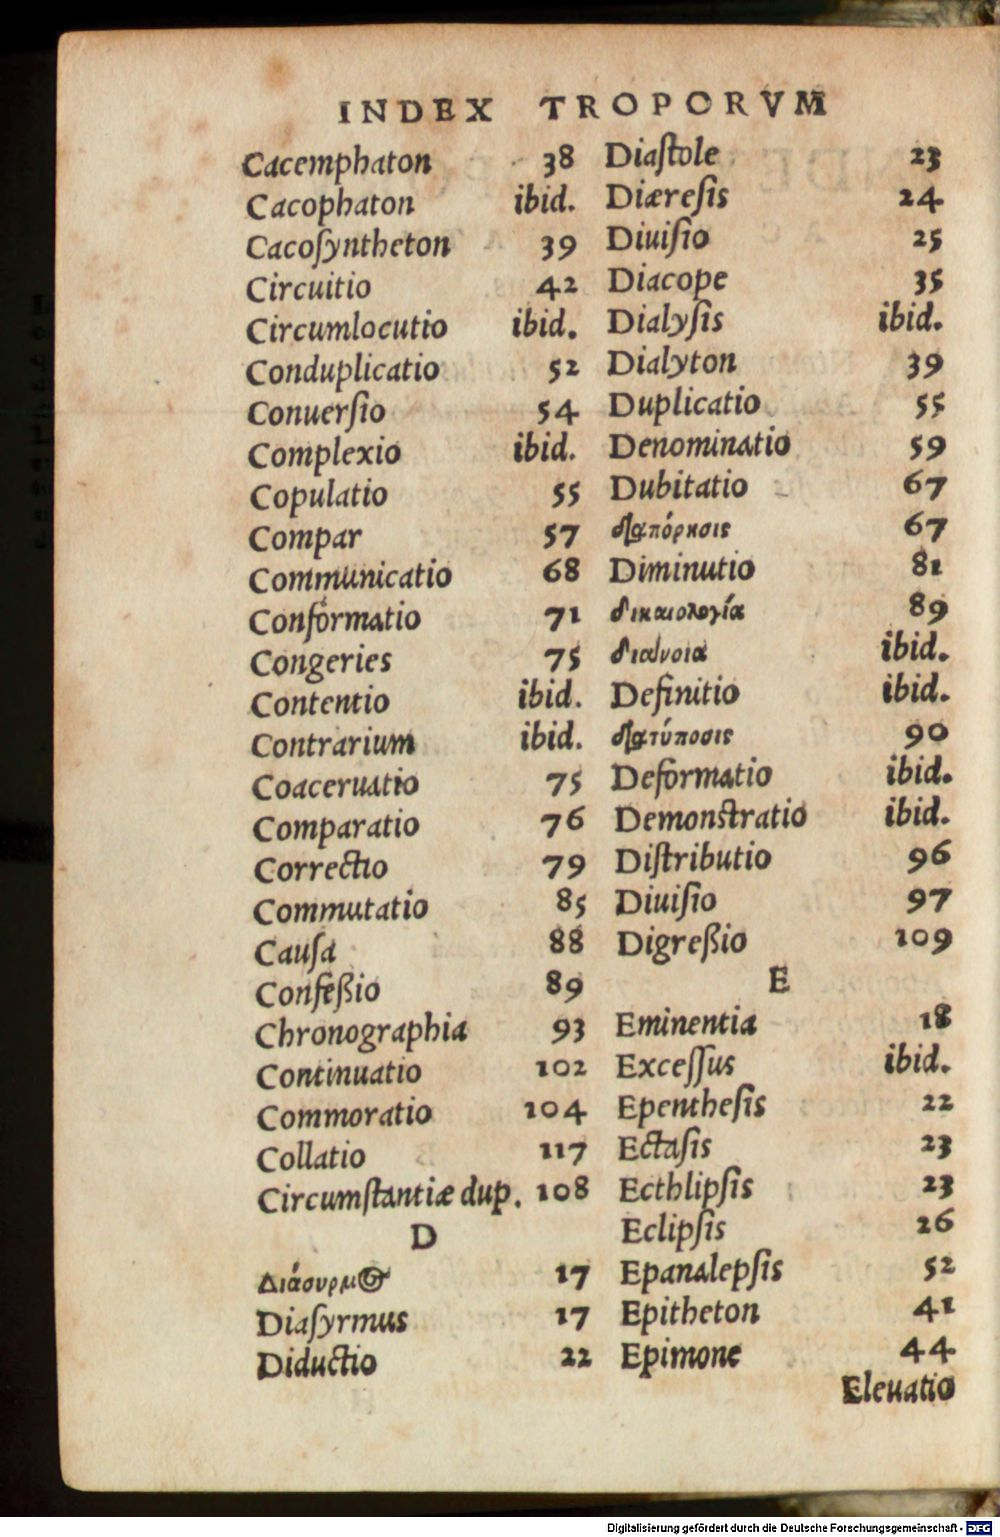 INDEX TROPORVM
Cacemphaton 38
Cacophaton ibid.
Cacoſyntheton 39
Circuitio 42
Circumlocutio ibid.
Conduplicatio 52
Conuerſio 54
Complexio ibid.
Copulatio 55
Compar 57
Communicatio 68
Conformatio 71
Congeries 75
Contentio ibid.
Contrarium ibid.
Coaceruatio 75
Comparatio 76
Correctio 79
Commutatio 85
Cauſa 88
Confeßio 89
Chronographia 93
Continuatio 102
Commoratio 104
Collatio 117
Circumſtantiæ dup. 108
D
Διάσυρμος 17
Diaſyrmus 17
Diductio 22
Diaſtole 23
Diæreſis 24
Diuiſio 25
Diacope 35
Dialyſis ibid.
Dialyton 39
Duplicatio 55
Denominatio 59
Dubitatio 67
διαπόρησις 67
Diminutio 81
δικαιολογία 89
διάνοια ibid.
Definitio ibid.
διατύποσις 90
Deformatio ibid.
Demonstratio ibid.
Diſtributio 96
Diuiſio 97
Digreßio 109
E
Eminentia 18
Exceſſus ibid.
Epentheſis 22
Ectaſis 23
Ecthlipſis 23
Eclipſis 26
Epanalepſis 52
Epitheton 41
Epimone 44
Eleuatio
Digitalisierung gefördert durch die Deutsche Forschungsgemeinschaft - DFG